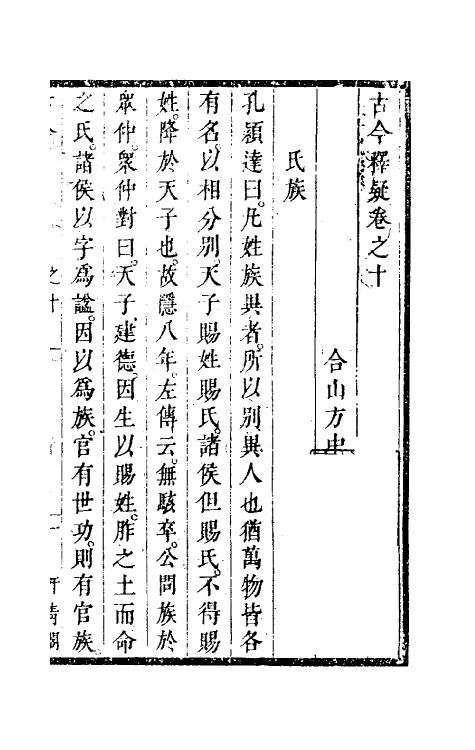 古今釋疑卷之十
合山方中
氏族
孔穎達曰。凡姓族異者。所以別異人也猶萬物皆各
有名。以相分別。天子賜姓賜氏。諸侯但賜氏。不得賜
姓。降於天子也。故隱八年。左傳云。無駭卒。公問族於
眾仲。眾仲對曰。天子建德。因生以賜姓。胙之土而命
之氏。諸侯以字為諡。因以為族。官有世功。則有官族